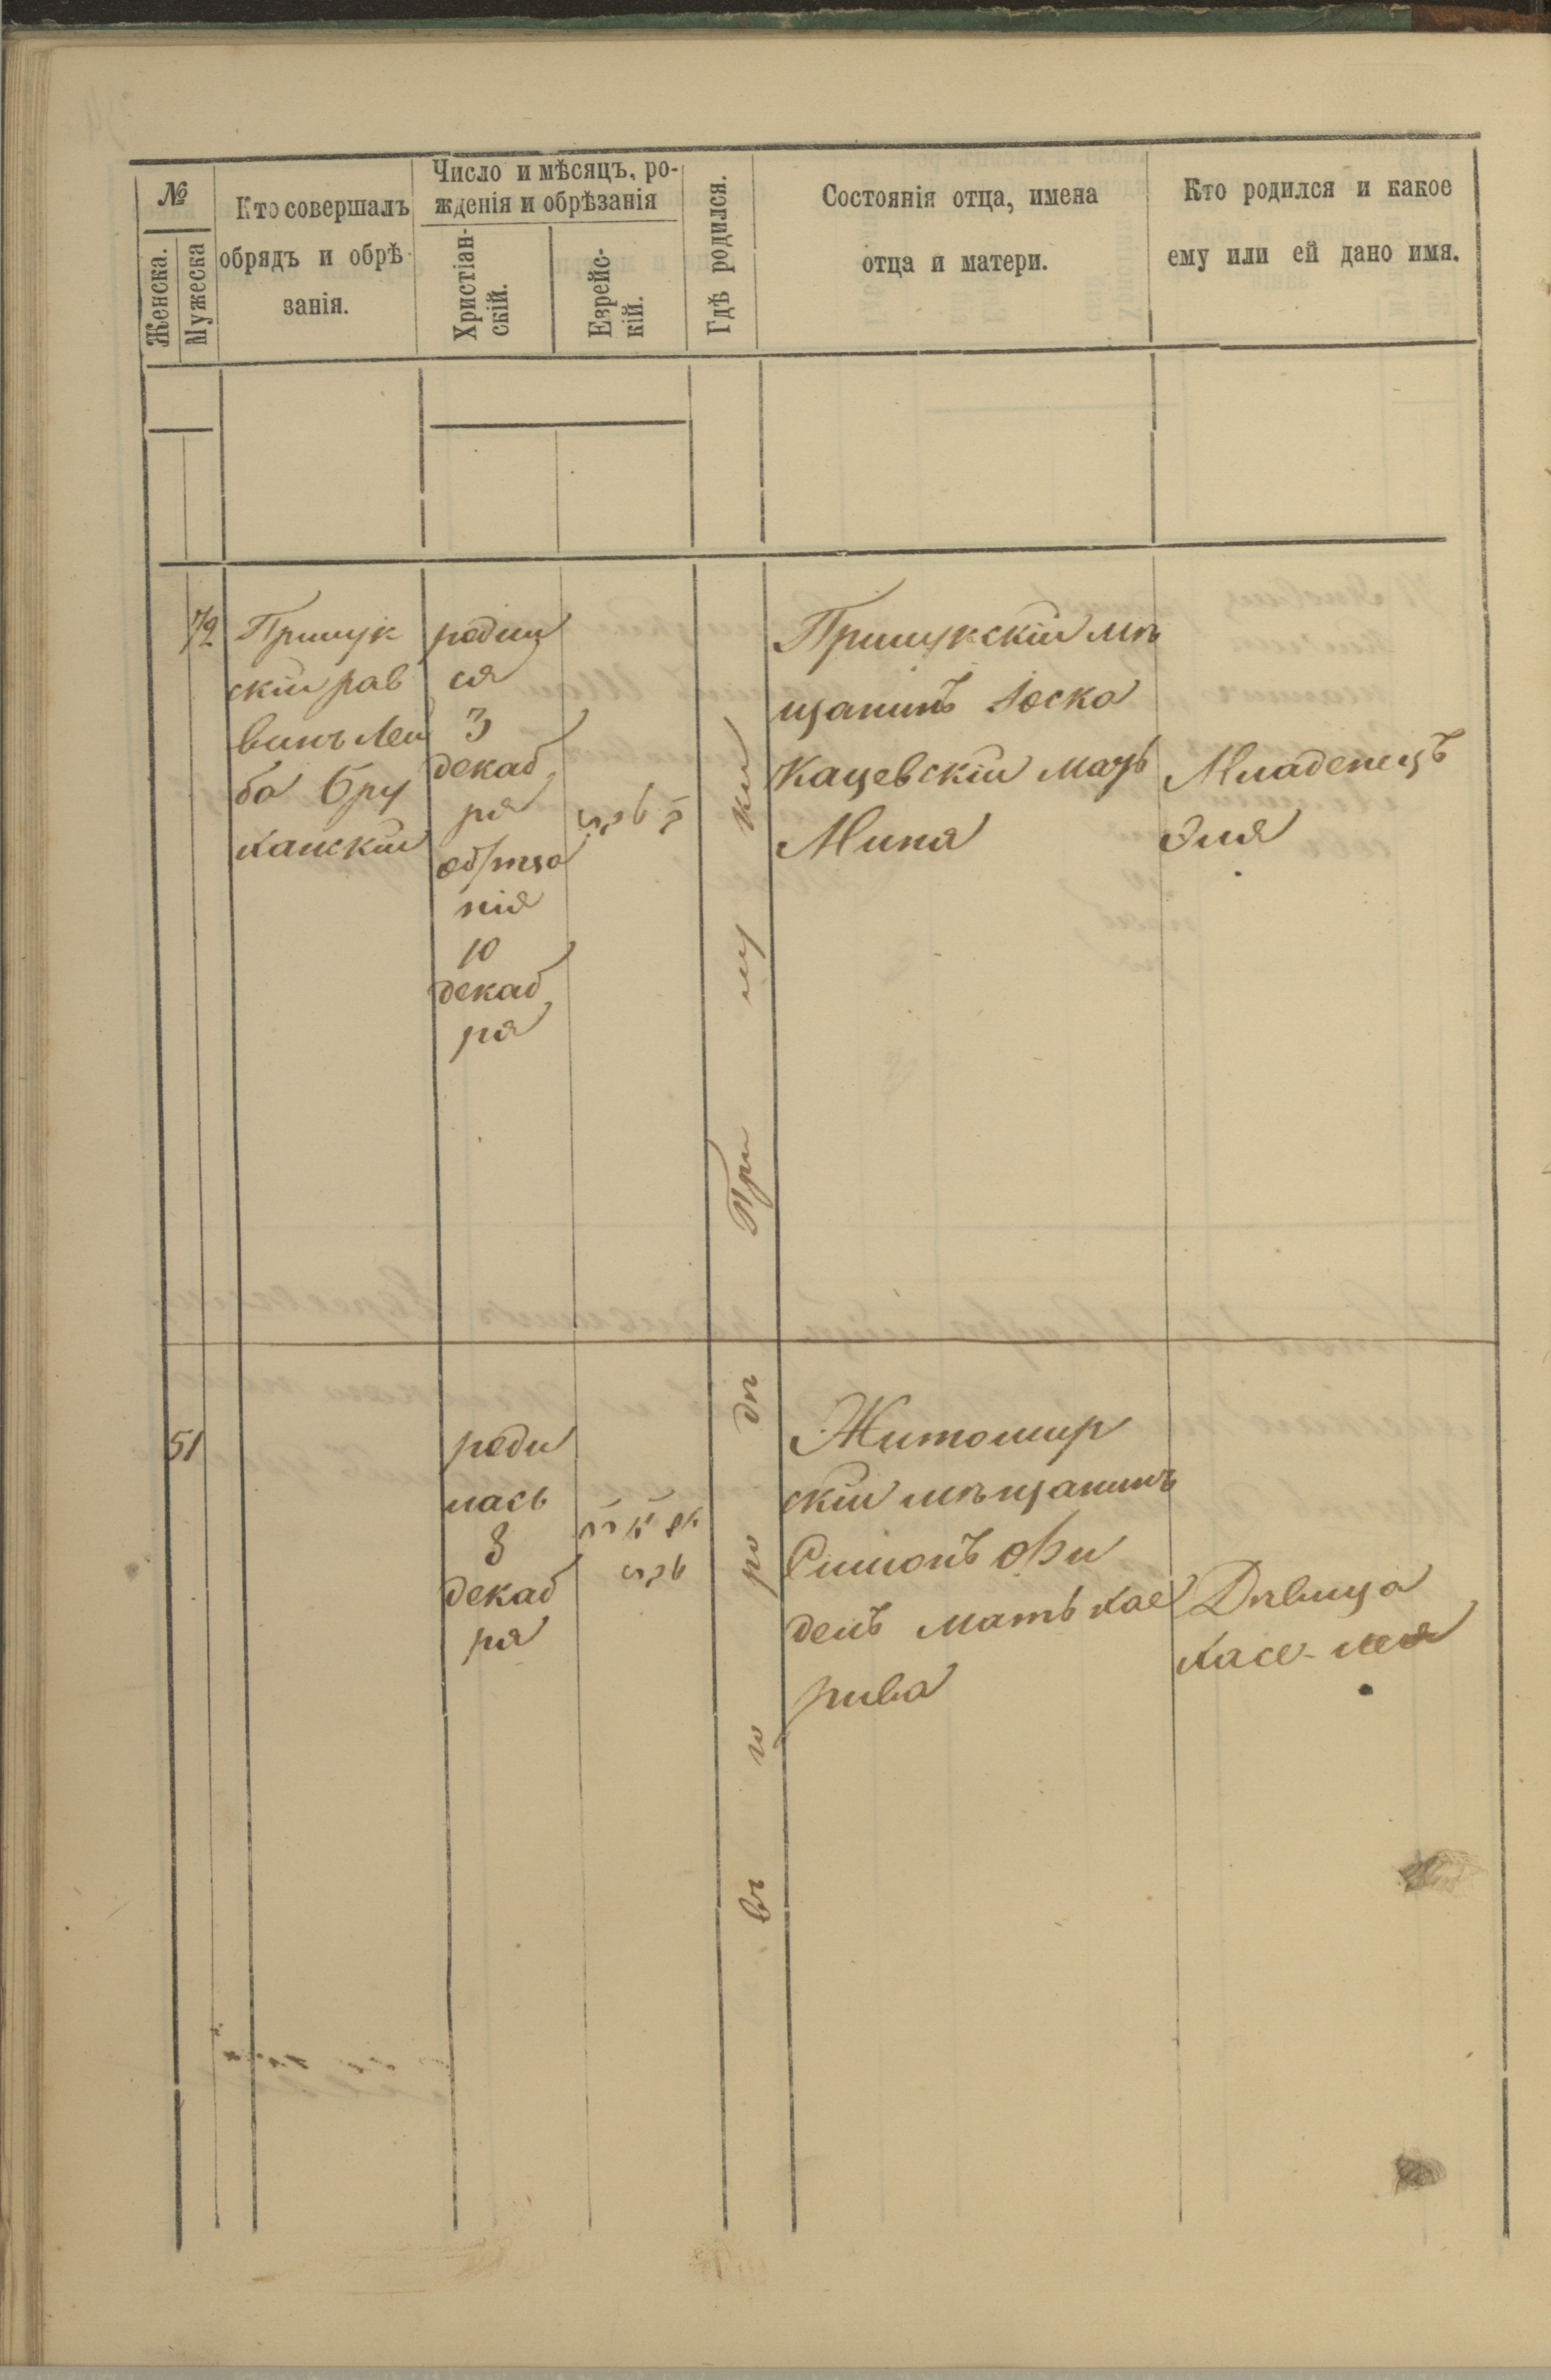 №
Женска.
Мужеска
Кто совершалъ
обрядъ и обрѣ-
занія.
Число и мѣсяцъ, ро-
жденія и обрѣзанія
Христіан-
скій.
Еврейс-
кій.
Гдѣ родился.
Состоянія отца, имена
отца и матери.
Кто родился и какое
ему или ей дано имя.
72
Прилук
скій рав
винъ Лей
ба Бру
ханскій
родил
ся
3
декаб
ря
обрѣза
нія
10
декаб
ря
въ го ро дѣ При лу ки
Прилукскій мѣ
щанинъ Іоска
Кацевскій мать
Миня
Младенецъ
Эля
51
роди
лась
3
декаб
ря
Житомир
скій мѣщанинъ
Симонъ Фи
дель мать хае
рива
Дѣвица